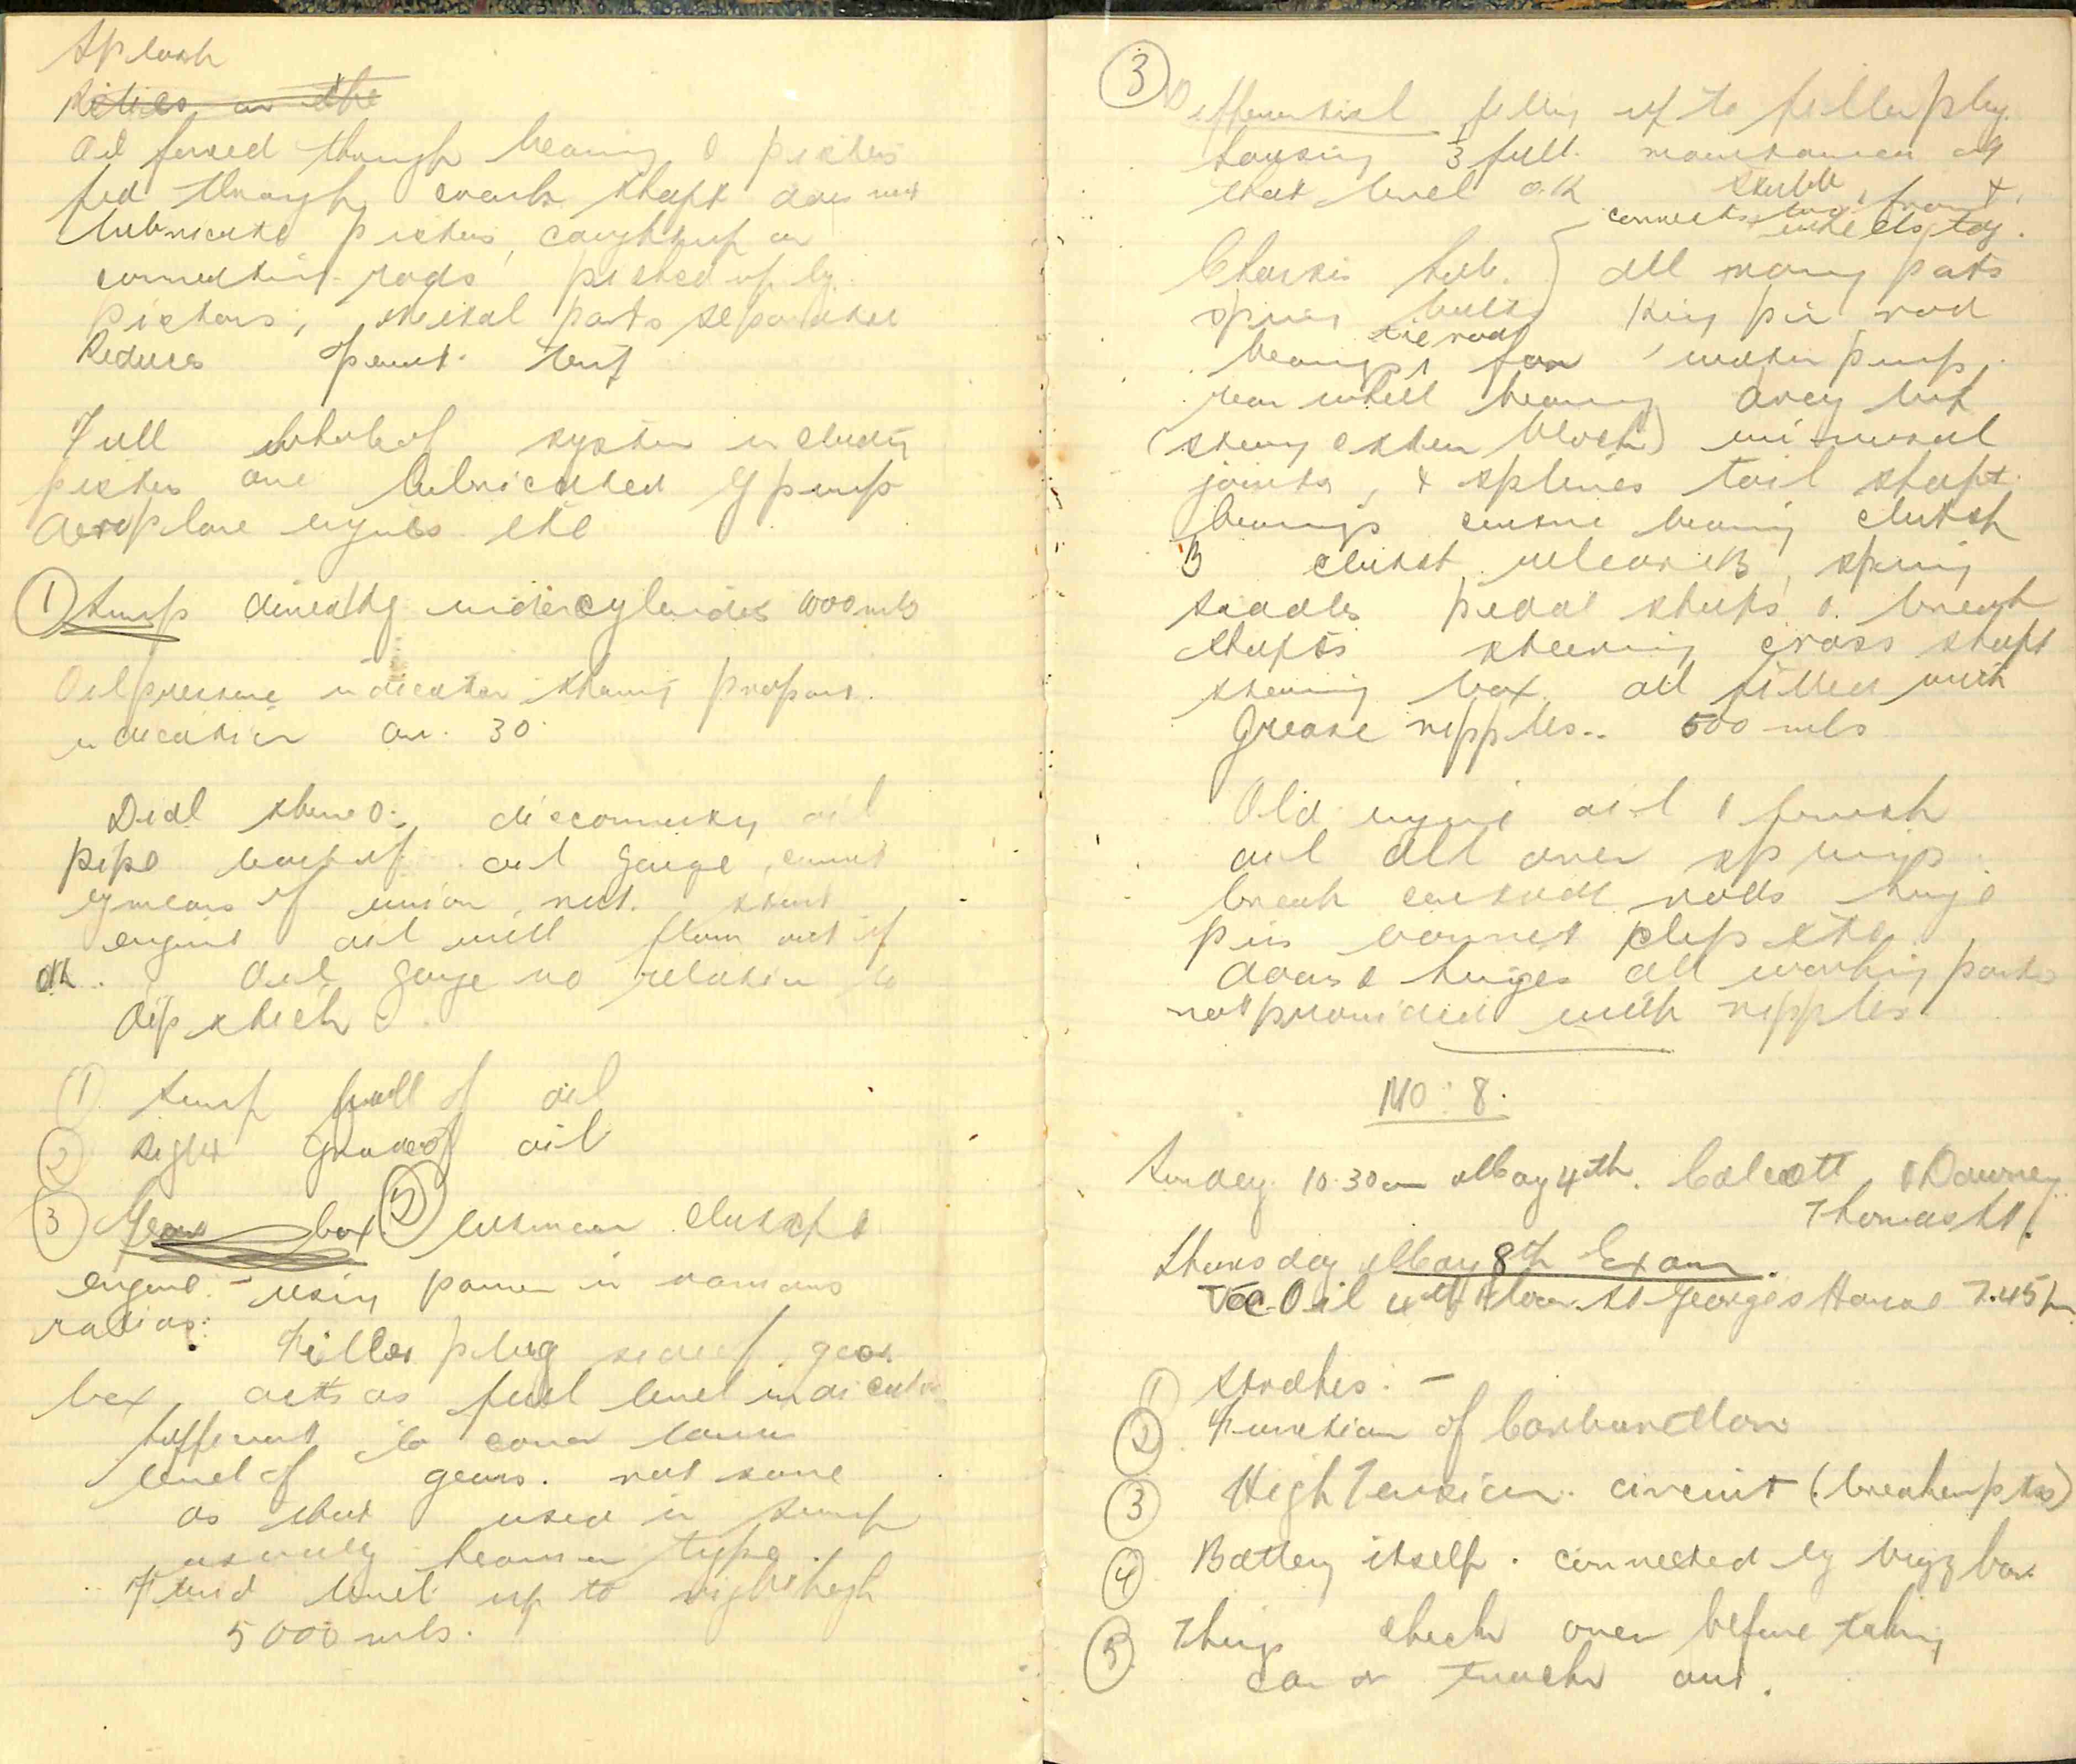 Splash
Relies on the
Oil forced through bearing & pistons
fed through crank shaft does not
lubricate pistons, caught up on
connecting rods, picked up by
pistons, metal parts separated
Reduces
Full whole of system including
pistons are lubricated by pump
Aeroplane engines etc
① Sump directly under cylinders 1000 mls
Oil pressure indicator showing proper
indication on 30
Dial shows 0. disconnecting oil
pipe back of oil gauge,
by means of union nut. start
engine oil will flow out if
OK. Oil gauge no relation to
dip stick
① Sump full of oil
② Right Grade of oil
③ Gear box between clutch &
engine - using power in various
ratios.
Filler plug side of gear
box acts as fuel level indicator
sufficient to cover lower
level of gears. not same
as that used in sump
usually heavier type
Fluid level up to right high
5000 mls.
③ Differential filling up to filler plug.
housing 3 full. maintained at
that level O.K
connects two front
wheels tog.
Chassis lub. all moving parts
spring bolts King pin rod
tie rod
bearings, fan water pump,
rear wheel bearing only but
universal
joints, & splines tail shaft
bearings centre bearing clutch
B clutch release B, spring
saddles pedal shafts & break
shafts steering cross shaft
steering box all fitted with
Grease nipples.. 500 mls
Old engine oil & brush
oil all over springs
break rods hinge
pin bonnet clip etc
doors & hinges all working parts
not provided with nipples
NO: 8.
Sunday 10.30am May 4th. Calcott & Downey
Thomas St.
Thursday May 8th Exam.
Vac. Oil 4th floor. St Georges House 7.45pm
① Strokes: -
② Function of Carburettor
③ High Tension. circuit (breaker pts)
④ Battery itself. connected by
⑤ Things check over before taking
car or truck out.